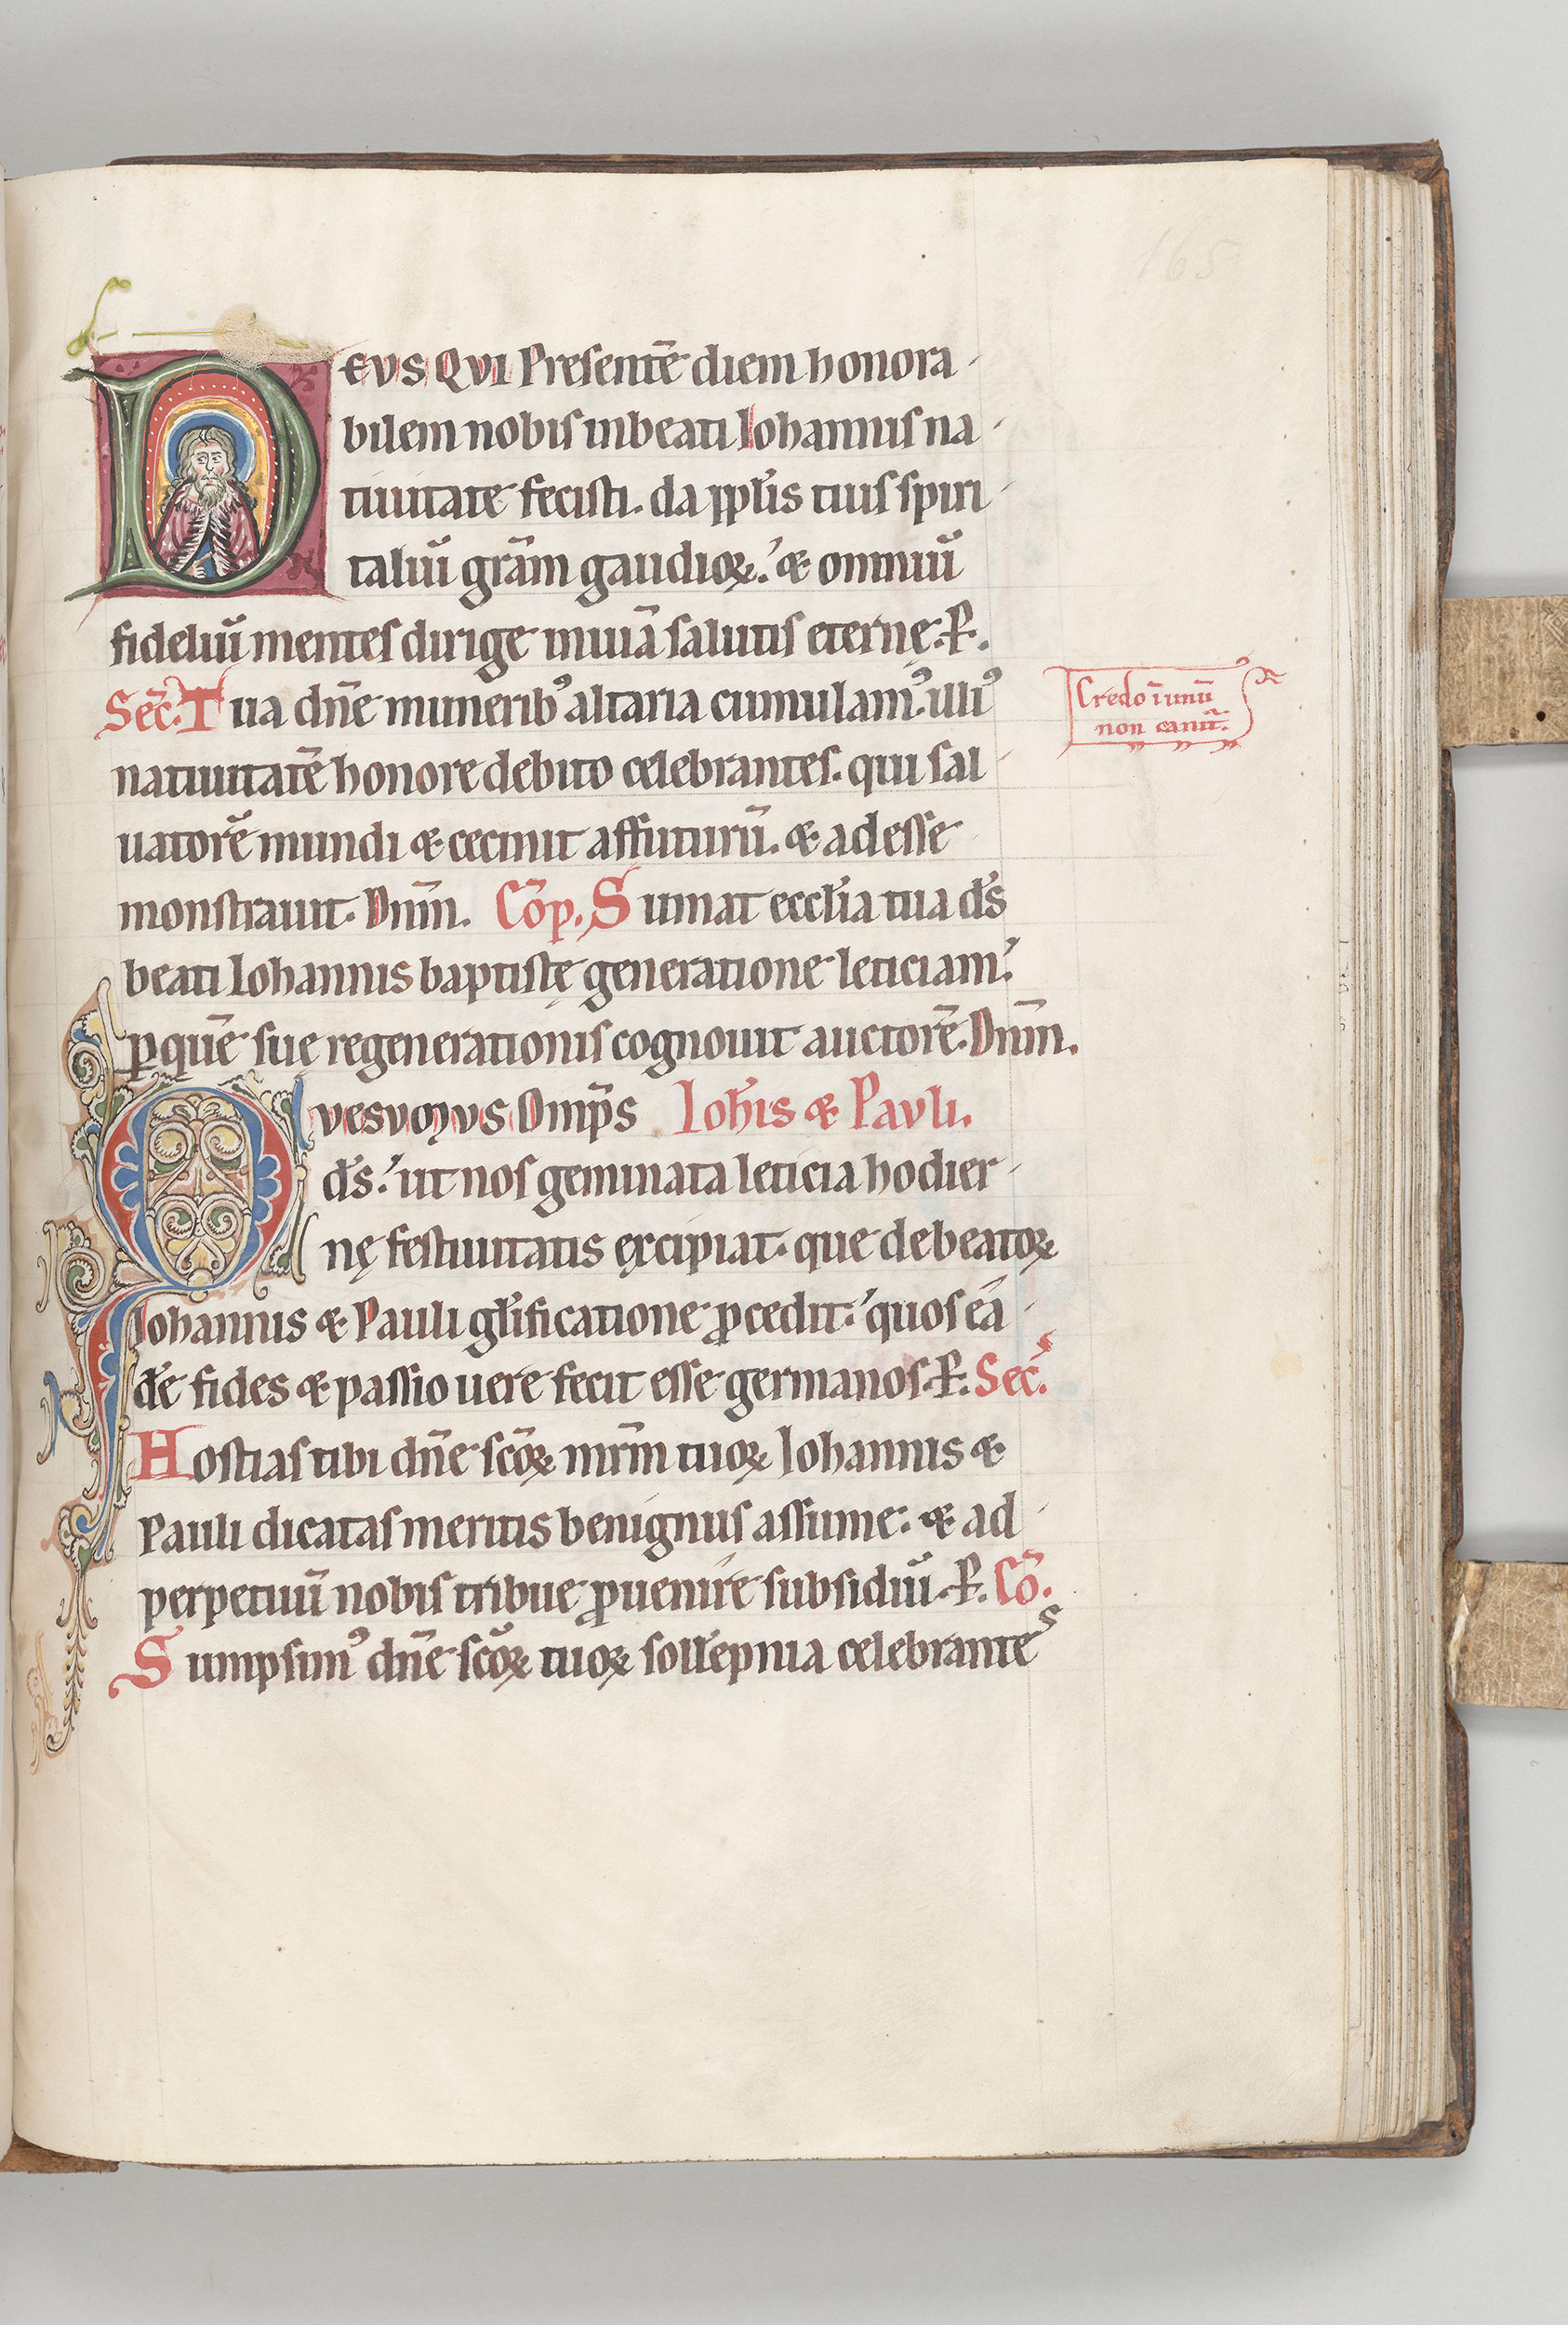 165
DEVS QVI Presentē diem honora
bilem nobis in beati Iohannis na
tiuitate fecisti. da ppl̄is tuis spiri
taliū grām gaudioꝝ. & omniū
fideliū mentes dirige in uiā salutis eternę. P.
Sec̄. Tua dn̄e munerib⁹ altaria cumulam⁹. illi⁹
natiuitatē honore debito celebrantes. qui sal
uatorē mundi & cecinit affuturū. & adesse
monstrauit. Dn̄m. Cōp. Sumat eccl̄ia tua d̄s
beati Iohannis baptistę generatione leticiam.
Credo ī unū
non canit̄.
per quē suę regenerationis cognouit auctorē. Dn̄m.
QVESVMVS Omp̄s Ioh̄is & Pauli.
d̄s. ut nos geminata leticia hodier
nę festiuitatis excipiat. que de beatoꝝ
Iohannis & Pauli gl̄ificatione ꝓcedit. quos eā
d̄e fides & passio uere fecit esse germanos. P. Sec̄.
Hostias tibi dn̄e sc̄oꝝ mr̄m tuoꝝ Iohannis &
Pauli dicatas meritis benignus assume. & ad
perpetuū nobis tribue ꝓuenire subsidiū. P. Cō.
Sumpsim⁹ dn̄e sc̄oꝝ tuoꝝ soll̄epnia celebrantes